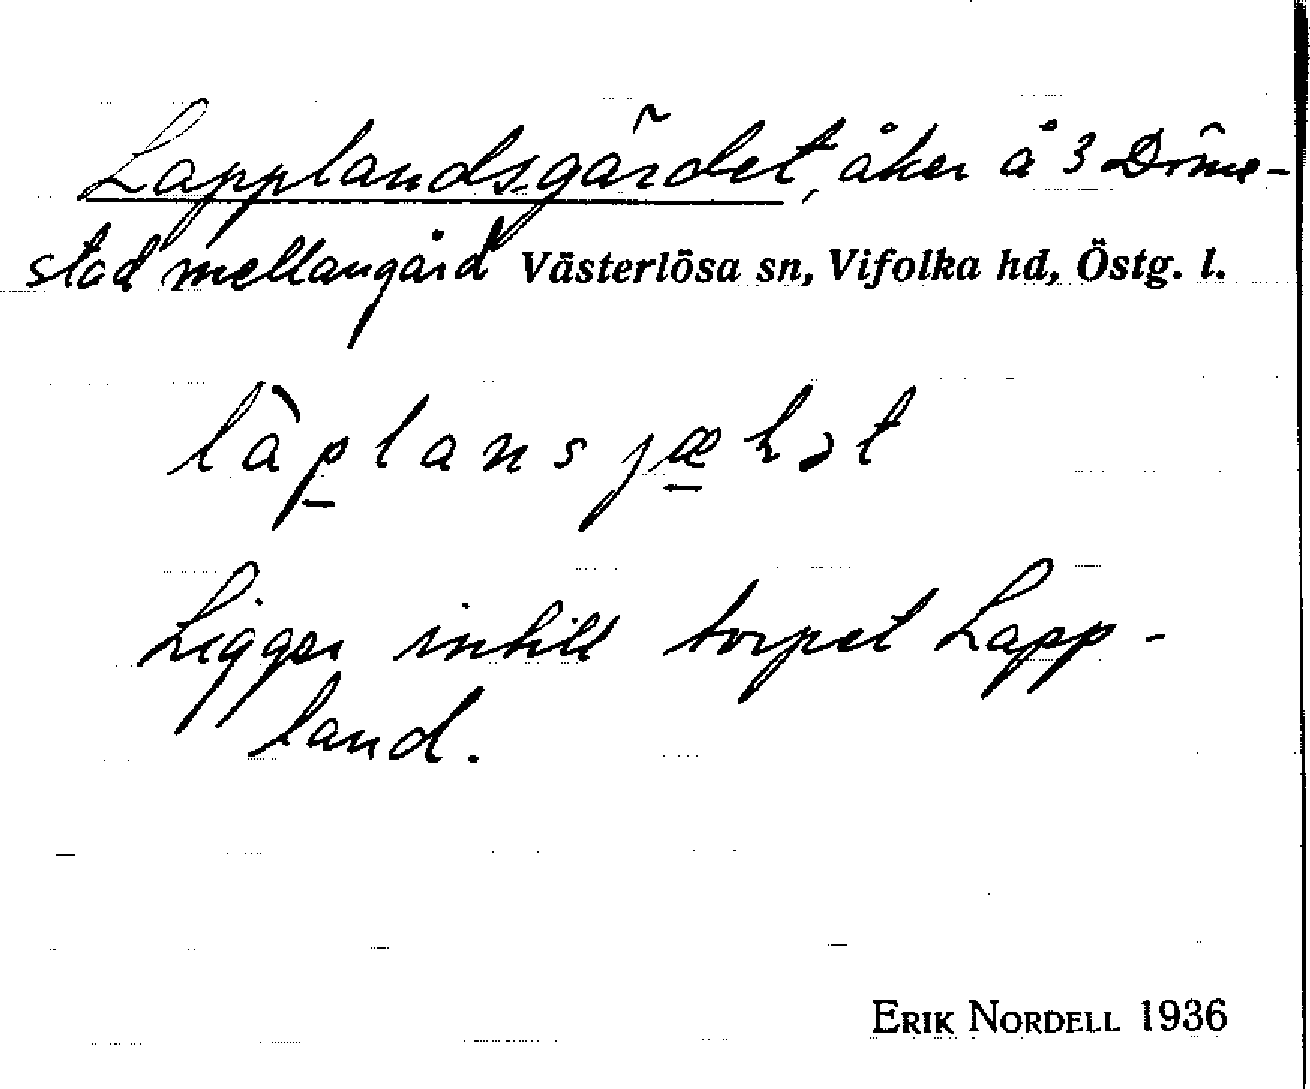 Lapplandsgärdet, åker å 3 Döme-
stad mellangård Västerlösa sn, Vifolka hd, Östg. l.
Ligger intill torpet Lapp-
land.
ERIK NORDELL 1936